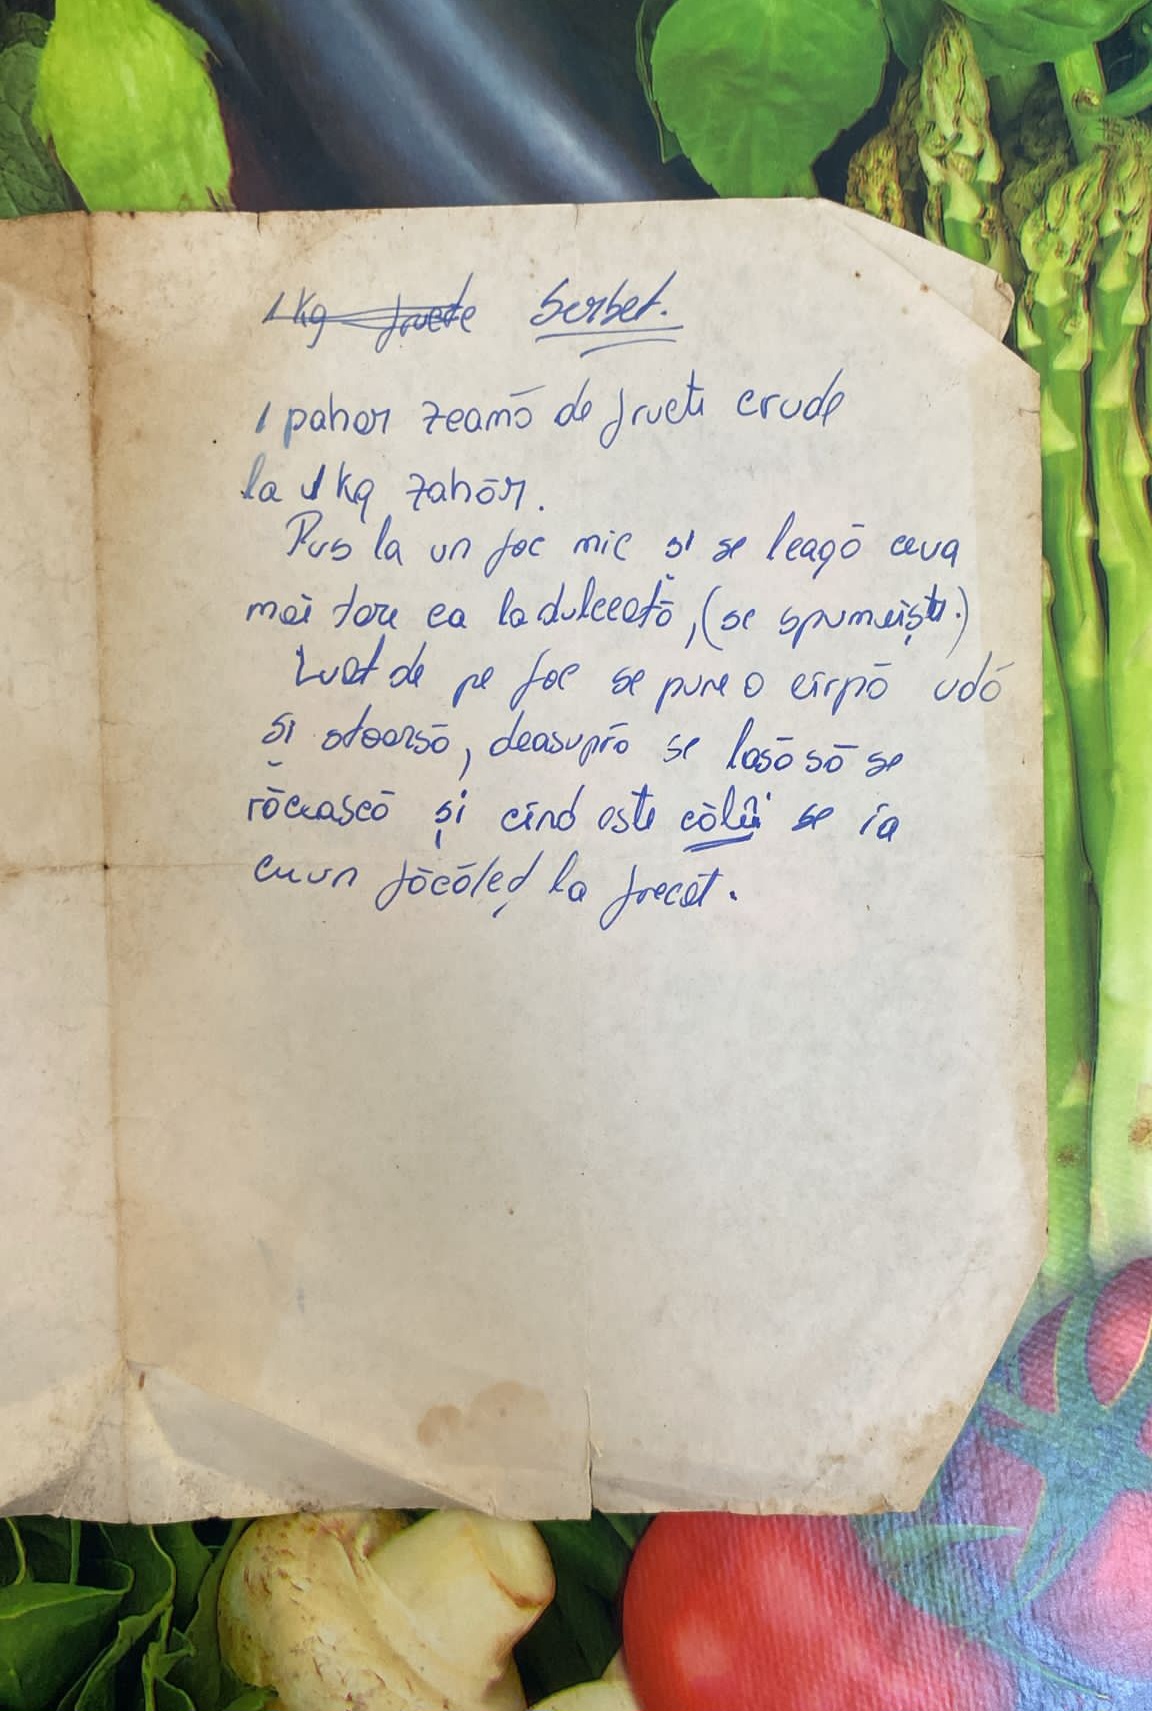 1 kg fructe Serbet.
1 pahar zeamă de fructe crude
la 1 kg zahăr.
Pus la un foc mic și se leagă ceva
mai tare ca la dulceață, (se spumuiește.)
Luat de pe foc se pune o cîrpă udă
și stoarsă, deasupra se lasă să se
răcească și cînd este călâi se ia
cu un făcăleț la frecat.